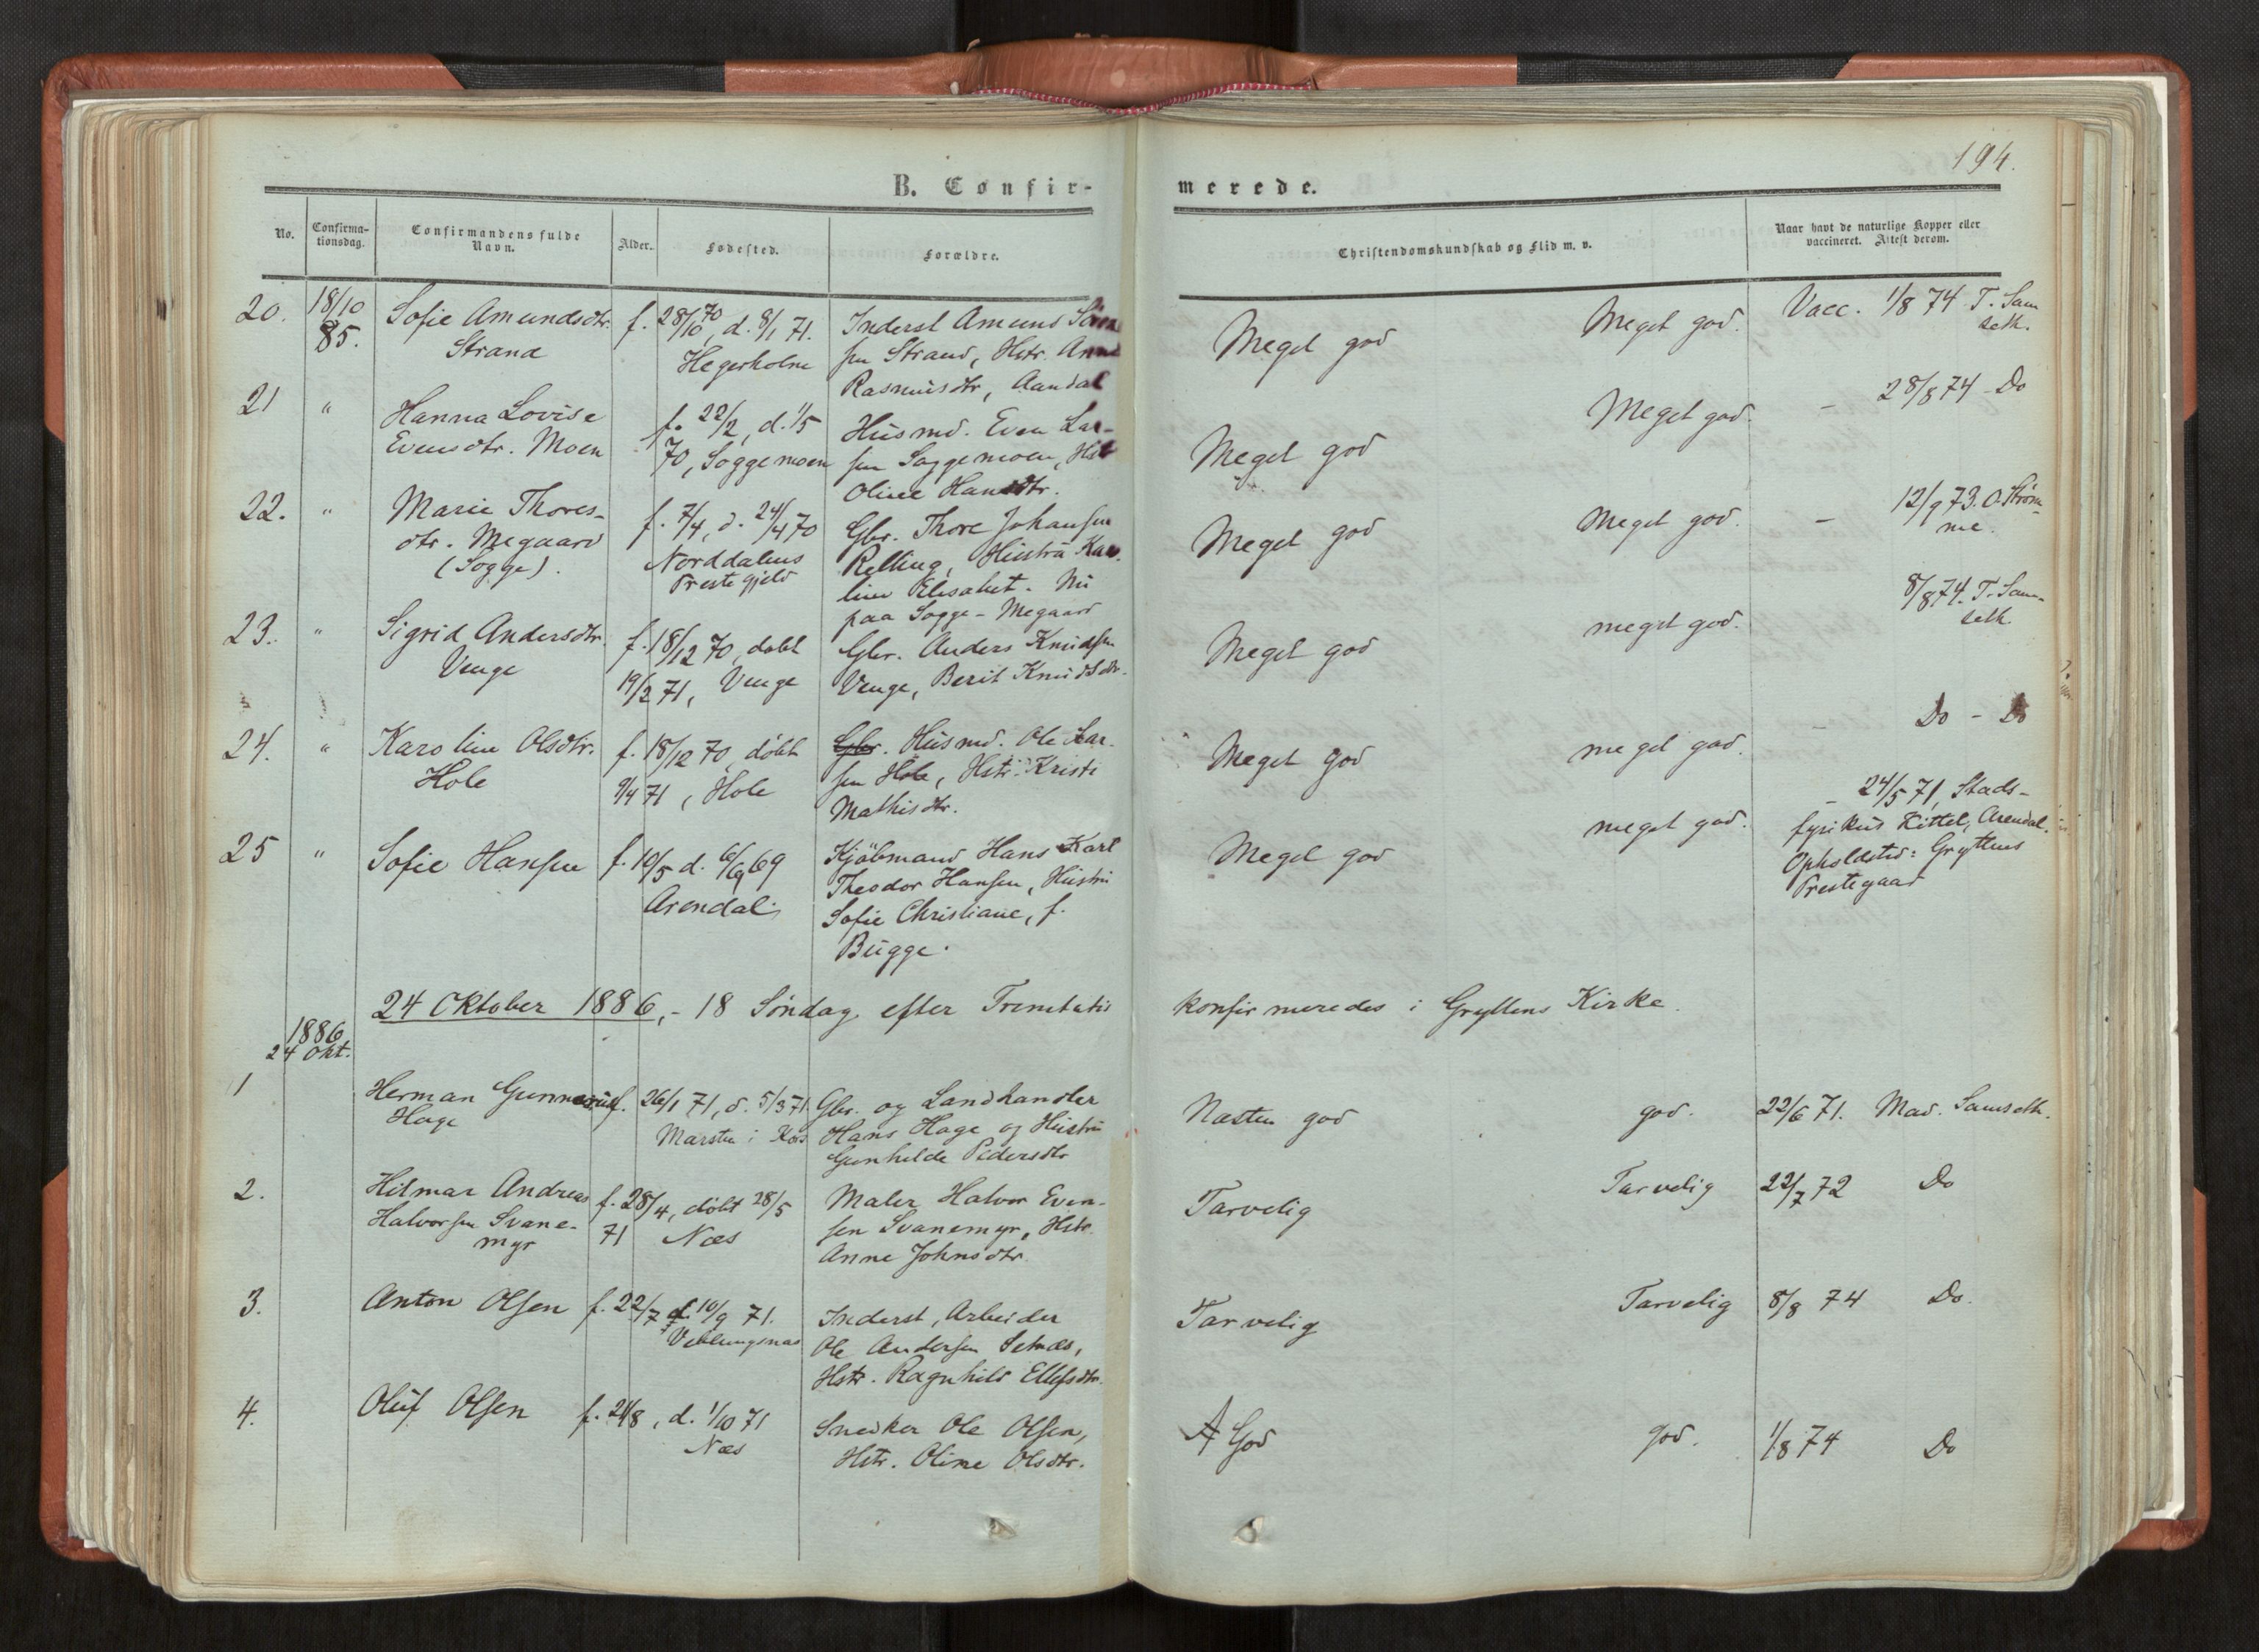 194.
B. Confirmerede.
No. Confirmationsdag. Confirmandens fulde Navn. Alder. Fødested. Forældre. Christendomskundskab og Flid m. v. Naar havt de naturlige Kopper eller vaccineret. Attest derom.
20. 18/10 Sofie Amundsdtr. f. 28/10 70, d. 8/1 71. Inderst Amund Søren Meget god Meget god. Vacc. 1/8 74 T. Sam
85. Strand Hegerholm sen Strand, Hstr. Anne seth.
Rasmusdtr, Aandal
21 " Hanna Lovise f. 22/2, d. 1/5 Husmd. Even Lar- Meget god Meget god. - 28/8 74 - Do
Evensdtr. Moen 70, Soggemoen sen Soggemoen, Hstr
Oline Hansdtr.
22. " Marie Thores- f. 7/4, d. 24/4 70 Gbr. Thore Johansen Meget god Meget god. - 12/9 73. O. Strøm-
dtr. Megaard Norddalens Relling, Hustru Karo me.
(Sogge). Prestegjeld line Elisabet. Nu
paa Sogge - Megaard
23. " Sigrid Andersdtr. f. 18/12 70, døbt Gbr. Anders Knudsen Meget god meget god. 8/8 74. T. Sam-
Venge 19/2 71, Venge Venge, Berit Knudsdtr. seth.
24. " Karoline Olsdtr. f. 18/12 70, døbt Gbr. Husmd. Ole Lar- Meget god meget god. - Do - Do
Hole 9/4 71, Hole sen Hole, Hstr. Kristi
Mathisdtr.
25 " Sofie Hansen f. 10/5 d. 6/9 69 Kjøbmand Hans Karl Meget god meget god. - 24/5 71, Stads-
Arendal. Theodor Hansen, Hustru fysikus Kittel, Arendal.
Sofie Christiane, f. Opholdsted: Gryttens
Bugge. Prestegaard
24 Oktober 1886, - 18 Søndag efter Trinitatis konfirmeredes i Gryttens Kirke.
1886
24 Okt.
1 Herman Gunnerius f. 26/1 71, d. 5/3 71. Gbr. og Landhandler Næsten god god. 22/6 71. Mad. Samseth.
Hage Marsten i Kors Hans Hage og Hustru
Gunhilde Pedersdtr
2. Hilmar Andreas f. 28/4, døbt 28/5 Maler Halvor Even- Tarvelig Tarvelig 22/7 72 Do
Halvorsen Svane- 71 Næs sen Svanemyr, Hstr.
myr Anne Johnsdtr.
3. Anton Olsen f. 22/7 d. 10/9 71. Inderst, Arbeider Tarvelig Tarvelig 8/8 74 Do.
Veblungsnæs Ole Andersen Setnæs,
Hstr. Ragnhild Ellefsdtr.
4. Oluf Olsen f. 24/8, d. 1/10 71 Snedker Ole Olsen, God god. 1/8 74 Do
Næs Hstr. Oline Olsdtr.